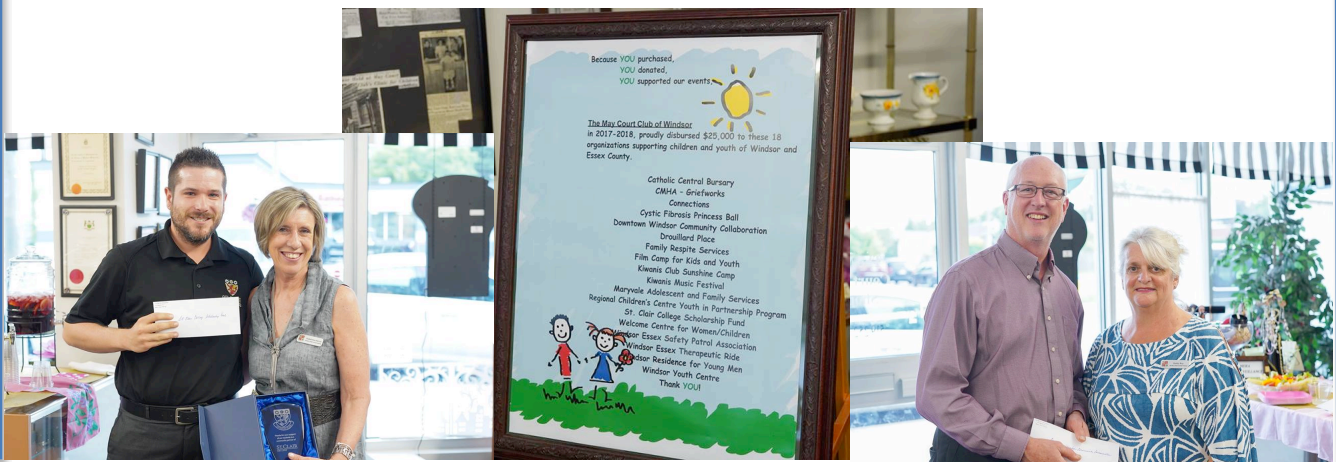 Because YOU purchased,
YOU donated,
YOU supported our events,
The May Court Club of Windsor
in 2017-2018, proudly disbursed $25,000 to these 18
organizations supporting children and youth of Windsor and
Essex County.
Catholic Central Bursary
CMHA - Griefworks
Connections
Cystic Fibrosis Princess Ball
Downtown Windsor Community Collaboration
Drouillard Place
Family Respite Services
Film Camp for Kids and Youth
Kiwanis Club Sunshine Camp
Kiwanis Music Festival
Maryvale Adolescent and Family Services
Regional Children's Centre Youth in Partnership Program
St. Clair College Scholarship Fund
Welcome Centre for Women/Children
Essex Safety Patrol Association
Windsor Essex Therapeutic Ride
Residence for Young Men
Windsor Youth Centre
Thank YOU!